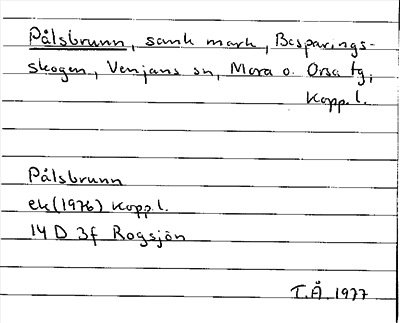 Pålsbrunn, sank mark, Besparings-
skogen, Venjans sn, Mora o. Orsa tg,
Kopp. l.
Pålsbrunn
ek (1976) Kopp. l.
14 D 3f Rogsjön
T.Å. 1977